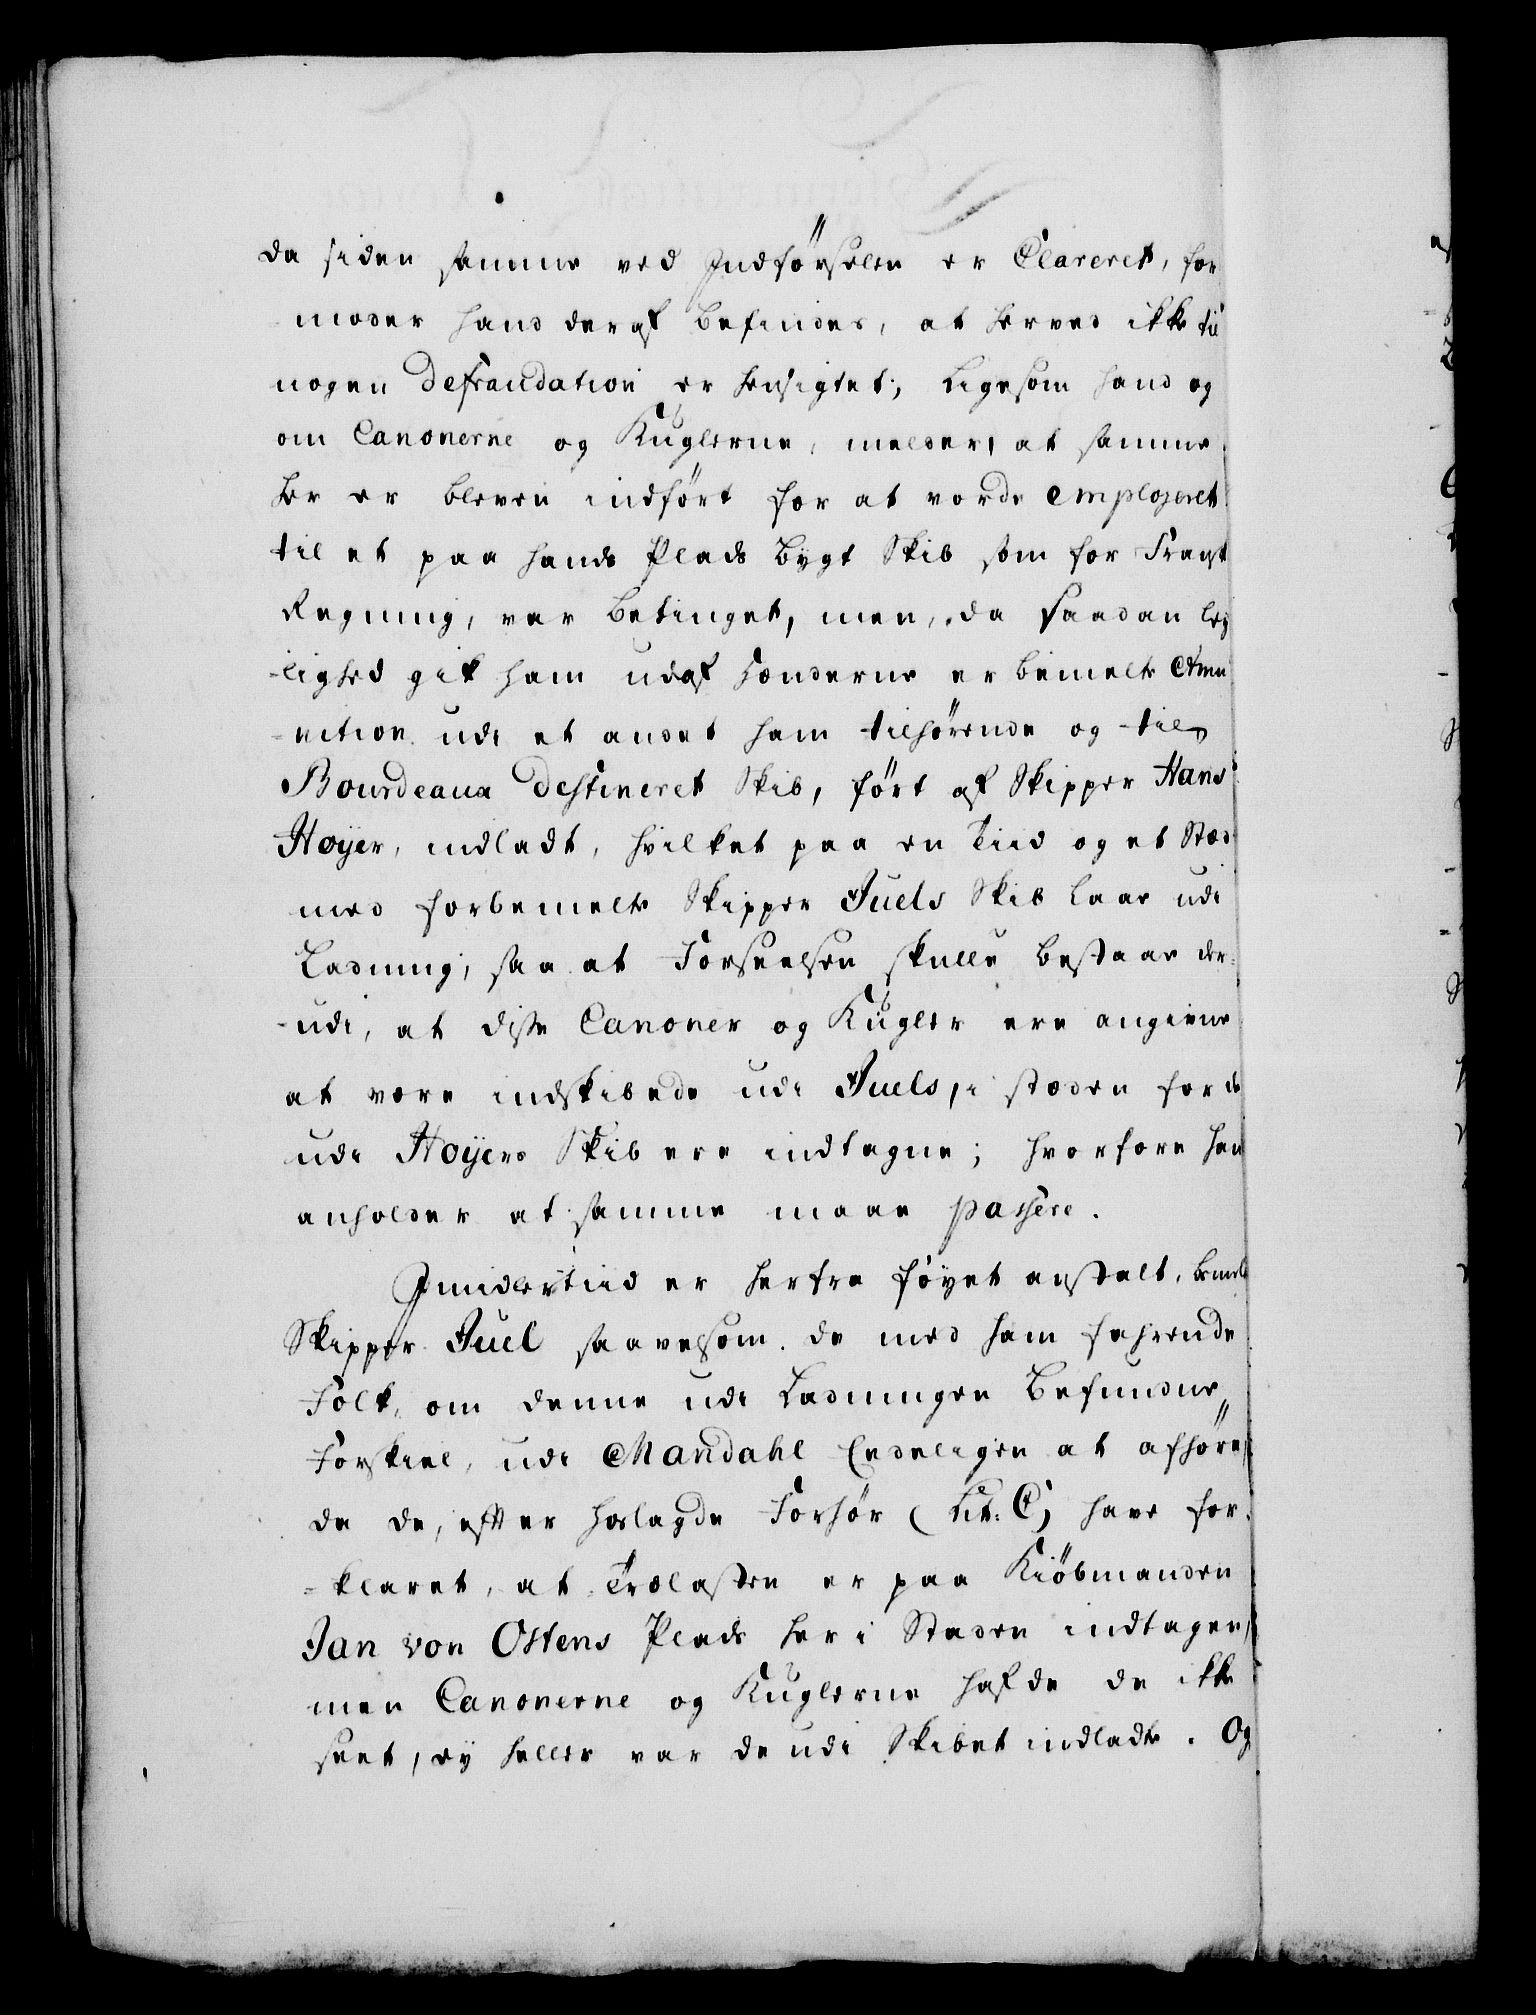 da siden samme ved Indførselen er Clareret, for
-moder hand deraf befindes, at herved ikke til
nogen Defraudation er hensigtet; Ligesom hand og
om Canonerne og Kuglerne, melder, at samme
her er bleven indført for at vorde employeret
til et paa hands Plads bygt Skib som for Fragt
Regning, var betinget, men, da saadan lej
-lighed gik ham udaf Hænderne er bemelte Amu
-nition udi et andet ham tilhørende og til
Bourdeaux Destineret Skib, ført af Skipper Hans
Høyer, indladt, hvilket paa en Tiid og et Stæd
med forbemelte Skipper Juels Skib laae udi
Ladning, saa at Forseelsen skulle bestaae der=
-udi, at disse Canoner og Kugler ere angivne
at være indskibede udi Juels, i stæden for de
udi Høyers Skib ere indtagne; hvorfore han
anholder at samme maae passere.
Imidlertiid er herfra føyet anstalt, bemelte
Skipper Juel saavelsom de med ham fahrende
Folk, om denne udi Ladningen befundne
Forskiel, udi Mandahl Eedeligen at afhøre,
da de, efter hoslagde Forhør (Lit: C) have for-
-klaret, at Trælasten er paa Kiøbmanden
Jan von Ostens Plads her i Staden indtagen,
men Canonerne og Kuglerne hafde de ikke
seet, ey heller var de udi Skibet indladte. Og